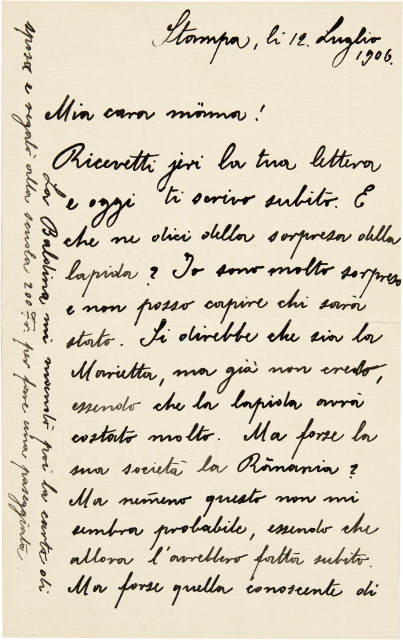 Stampa, li 12. Luglio
1906.
Mia cara mam̄a!
Ricevetti jeri la tua lettera
e oggi ti scrivo subito. E
che ne dici della sorpresa della
lapida? Io sono molto sorpreso
e non posso capire chi sarà
stato. Si direbbe che sia la
Marietta, ma già non credo,
essendo che la lapida avrà
costato molto. Ma forse la
sua società la Rānania?
Ma nem̄eno questo non mi
sembra probabile, essendo che
allora l'avrebbero fatta subito.
Ma forse quella conoscente di
La Baldina mi mandò poi la carta di
sposa e regalò alla scuola 200 Fr. per fare una paseggiata.